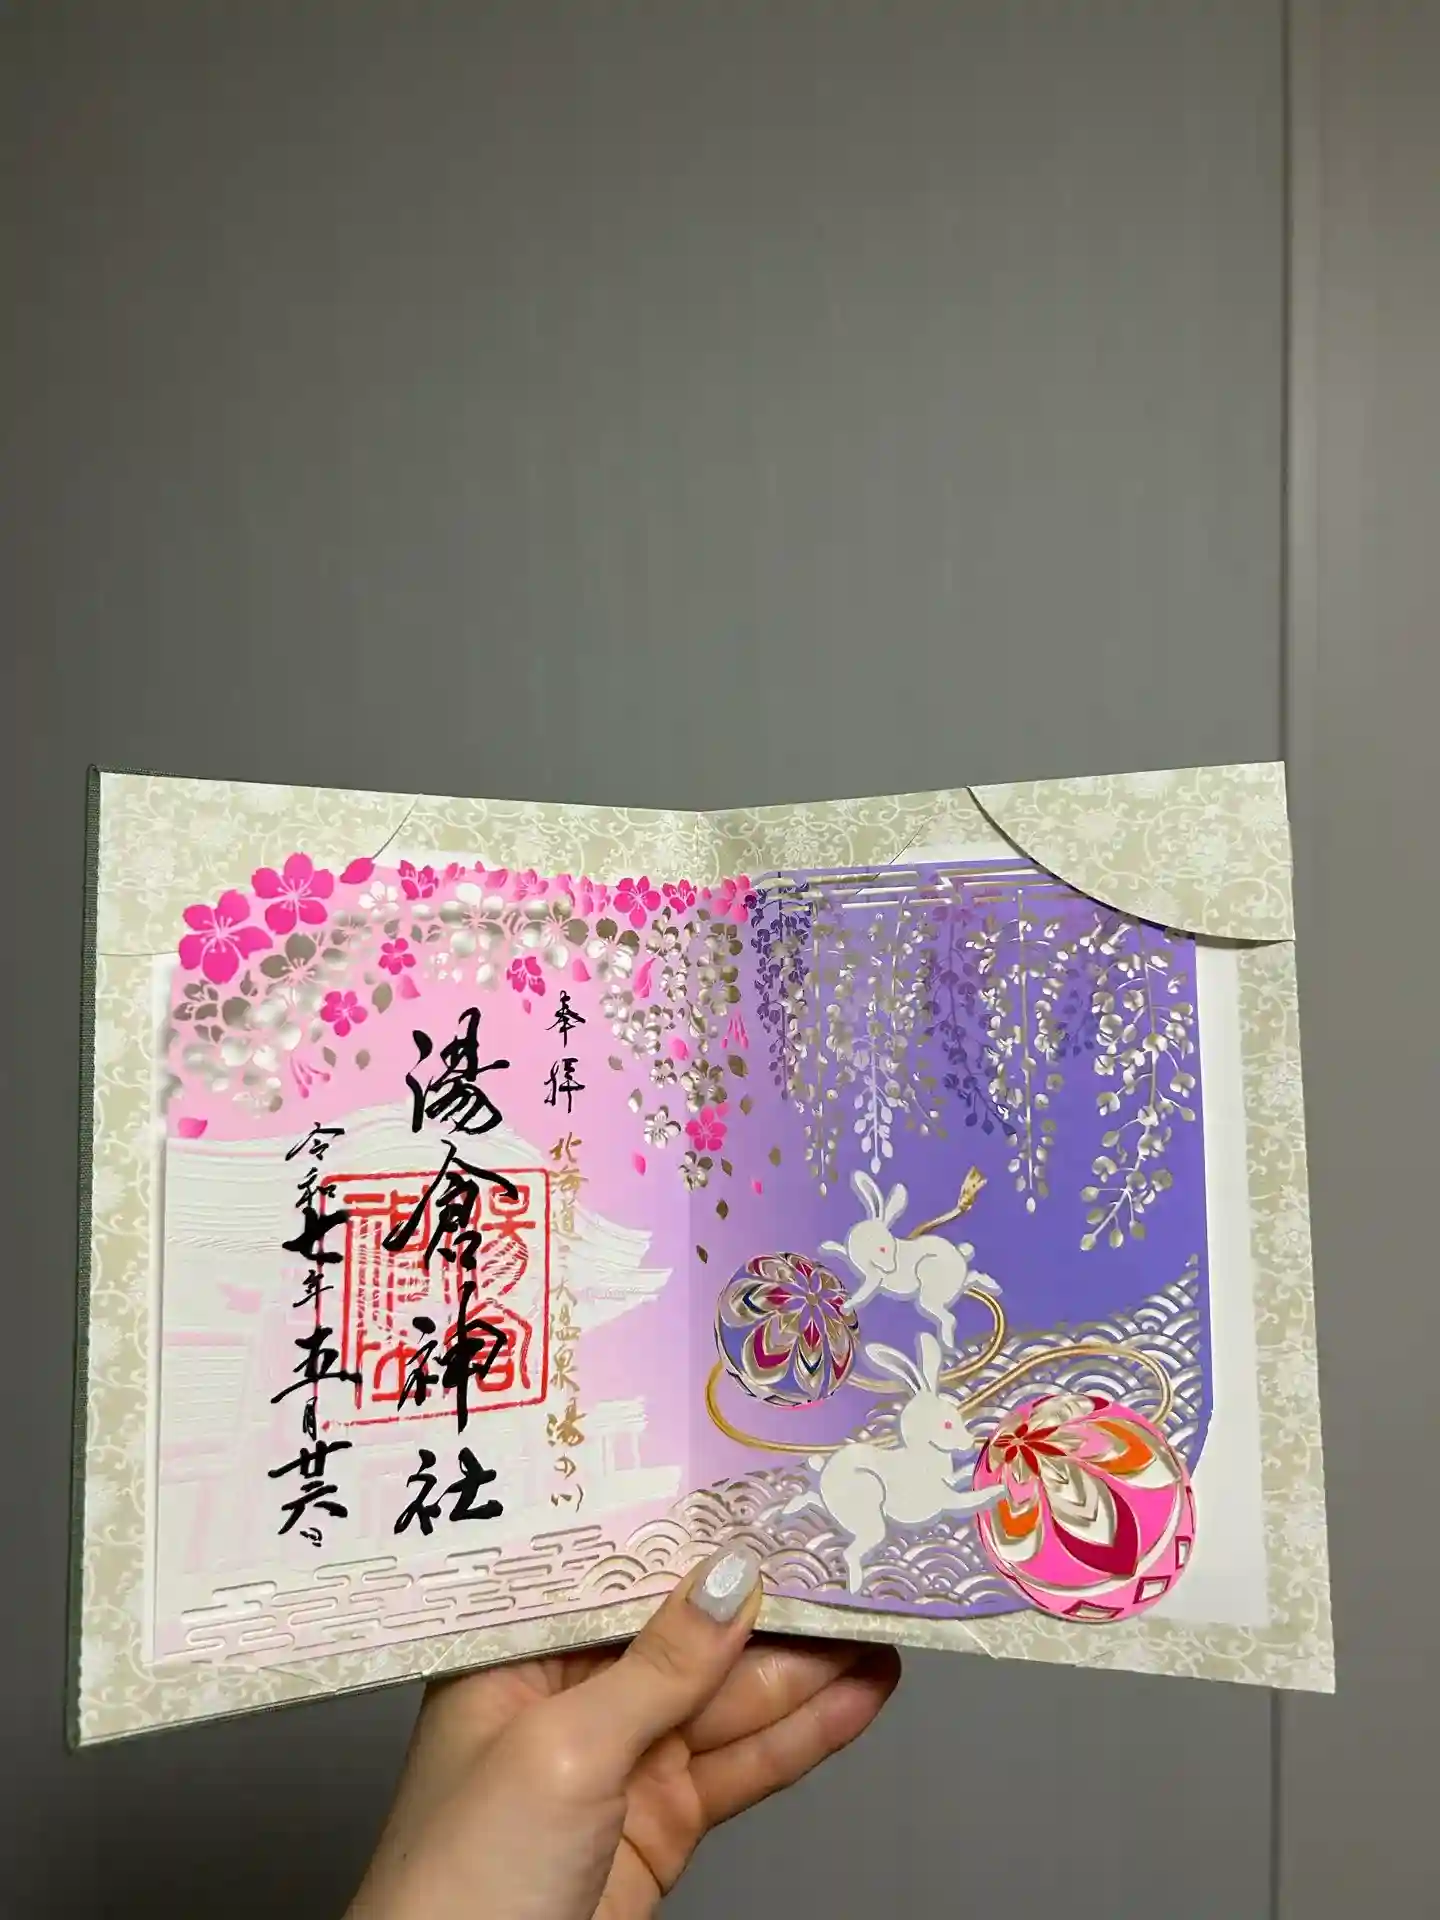 奉拝
北海道三大温泉 湯の川
湯倉神社
湯倉神社
令和七年五月廿六日